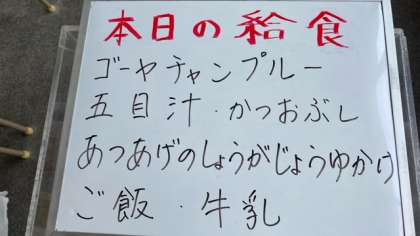 本日の給食
ゴーヤチャンプルー
五目汁・かつおぶし
あつあげのしょうがじょうゆかけ
ご飯・牛乳